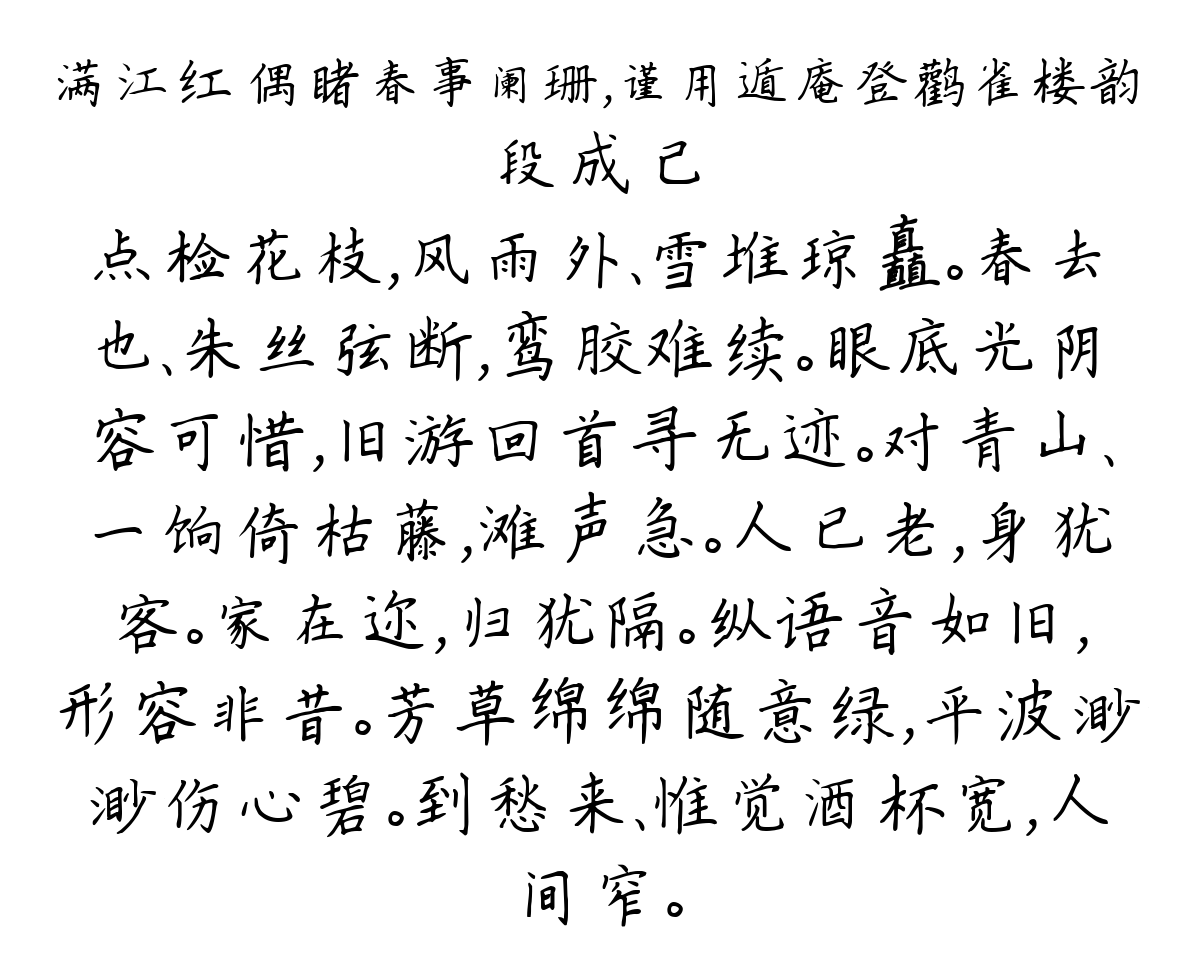 满江红偶睹春事阑珊,谨用遁庵登鹳雀楼韵
段成己
点检花枝,风雨外、雪堆琼矗。春去
也、朱丝弦断,鸾胶难续。眼底光阴
容可惜,旧游回首寻无迹。对青山、
一饷倚枯藤,滩声急。人已老,身犹
客。家在迩,归犹隔。纵语音如旧,
形容非昔。芳草绵绵随意绿,平波渺
渺伤心碧。到愁来、惟觉酒杯宽,人
间窄。